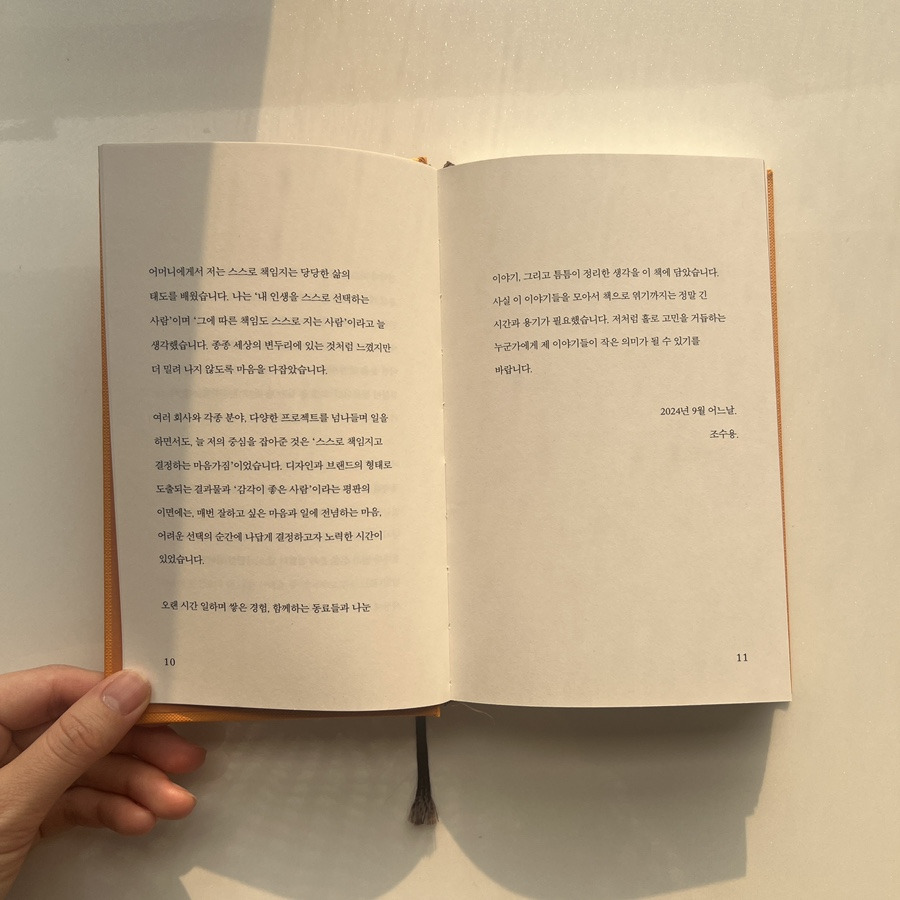 어머니에게서 저는 스스로 책임지는 당당한 삶의
태도를 배웠습니다. 나는 ‘내 인생을 스스로 선택하는
사람’이며 ‘그에 따른 책임도 스스로 지는 사람’이라고 늘
생각했습니다. 종종 세상의 변두리에 있는 것처럼 느꼈지만
더 밀려 나지 않도록 마음을 다잡았습니다.
여러 회사와 각종 분야, 다양한 프로젝트를 넘나들며 일을
하면서도, 늘 저의 중심을 잡아준 것은 ‘스스로 책임지고
결정하는 마음가짐’이었습니다. 디자인과 브랜드의 형태로
도출되는 결과물과 ‘감각이 좋은 사람’이라는 평판의
이면에는, 매번 잘하고 싶은 마음과 일에 전념하는 마음,
어려운 선택의 순간에 나답게 결정하고자 노력한 시간이
있었습니다.
오랜 시간 일하며 쌓은 경험, 함께하는 동료들과 나눈
10
이야기, 그리고 틈틈이 정리한 생각을 이 책에 담았습니다.
사실 이 이야기들을 모아서 책으로 엮기까지는 정말 긴
시간과 용기가 필요했습니다. 저처럼 홀로 고민을 거듭하는
누군가에게 제 이야기들이 작은 의미가 될 수 있기를
바랍니다.
2024년 9월 어느날.
조수용.
11